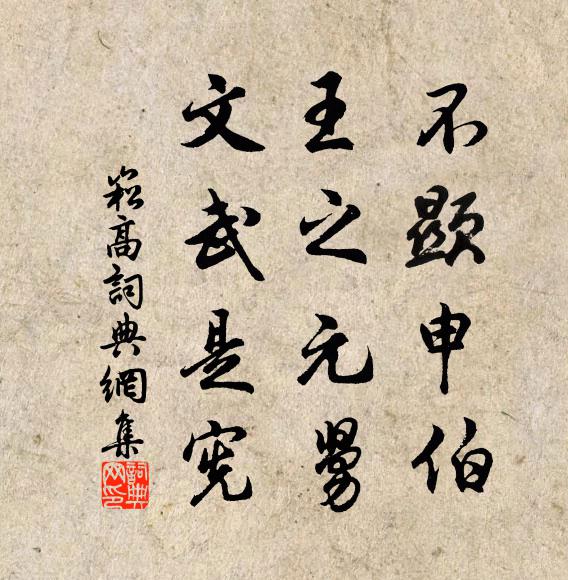 不顯申伯
王之元舅
文武是憲
崧高詞典網集
詞典網印